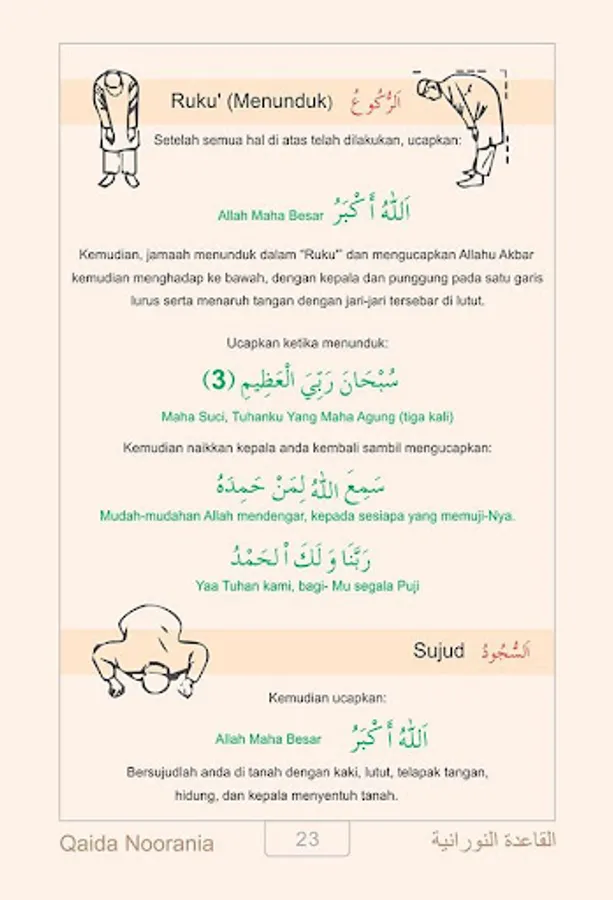 Ruku' (Menunduk) اَلرُّكُوعُ
Setelah semua hal di atas telah dilakukan, ucapkan:
Allah Maha Besar اَللّٰهُ أَكْبَرُ
Kemudian, jamaah menunduk dalam "Ruku'" dan mengucapkan Allahu Akbar
kemudian menghadap ke bawah, dengan kepala dan punggung pada satu garis
lurus serta menaruh tangan dengan jari-jari tersebar di lutut.
Ucapkan ketika menunduk:
سُبْحَانَ رَبِّيَ الْعَظِيمِ (3)
Maha Suci, Tuhanku Yang Maha Agung (tiga kali)
Kemudian naikkan kepala anda kembali sambil mengucapkan:
سَمِعَ اللّٰهُ لِمَنْ حَمِدَهُ
Mudah-mudahan Allah mendengar, kepada sesiapa yang memuji-Nya.
رَبَّنَا وَ لَكَ اْلحَمْدُ
Yaa Tuhan kami, bagi- Mu segala Puji
Sujud اَلسُّجُودُ
Kemudian ucapkan:
Allah Maha Besar اَللّٰهُ أَكْبَرُ
Bersujudlah anda di tanah dengan kaki, lutut, telapak tangan,
hidung, dan kepala menyentuh tanah.
Qaida Noorania 23 القاعدة النورانية